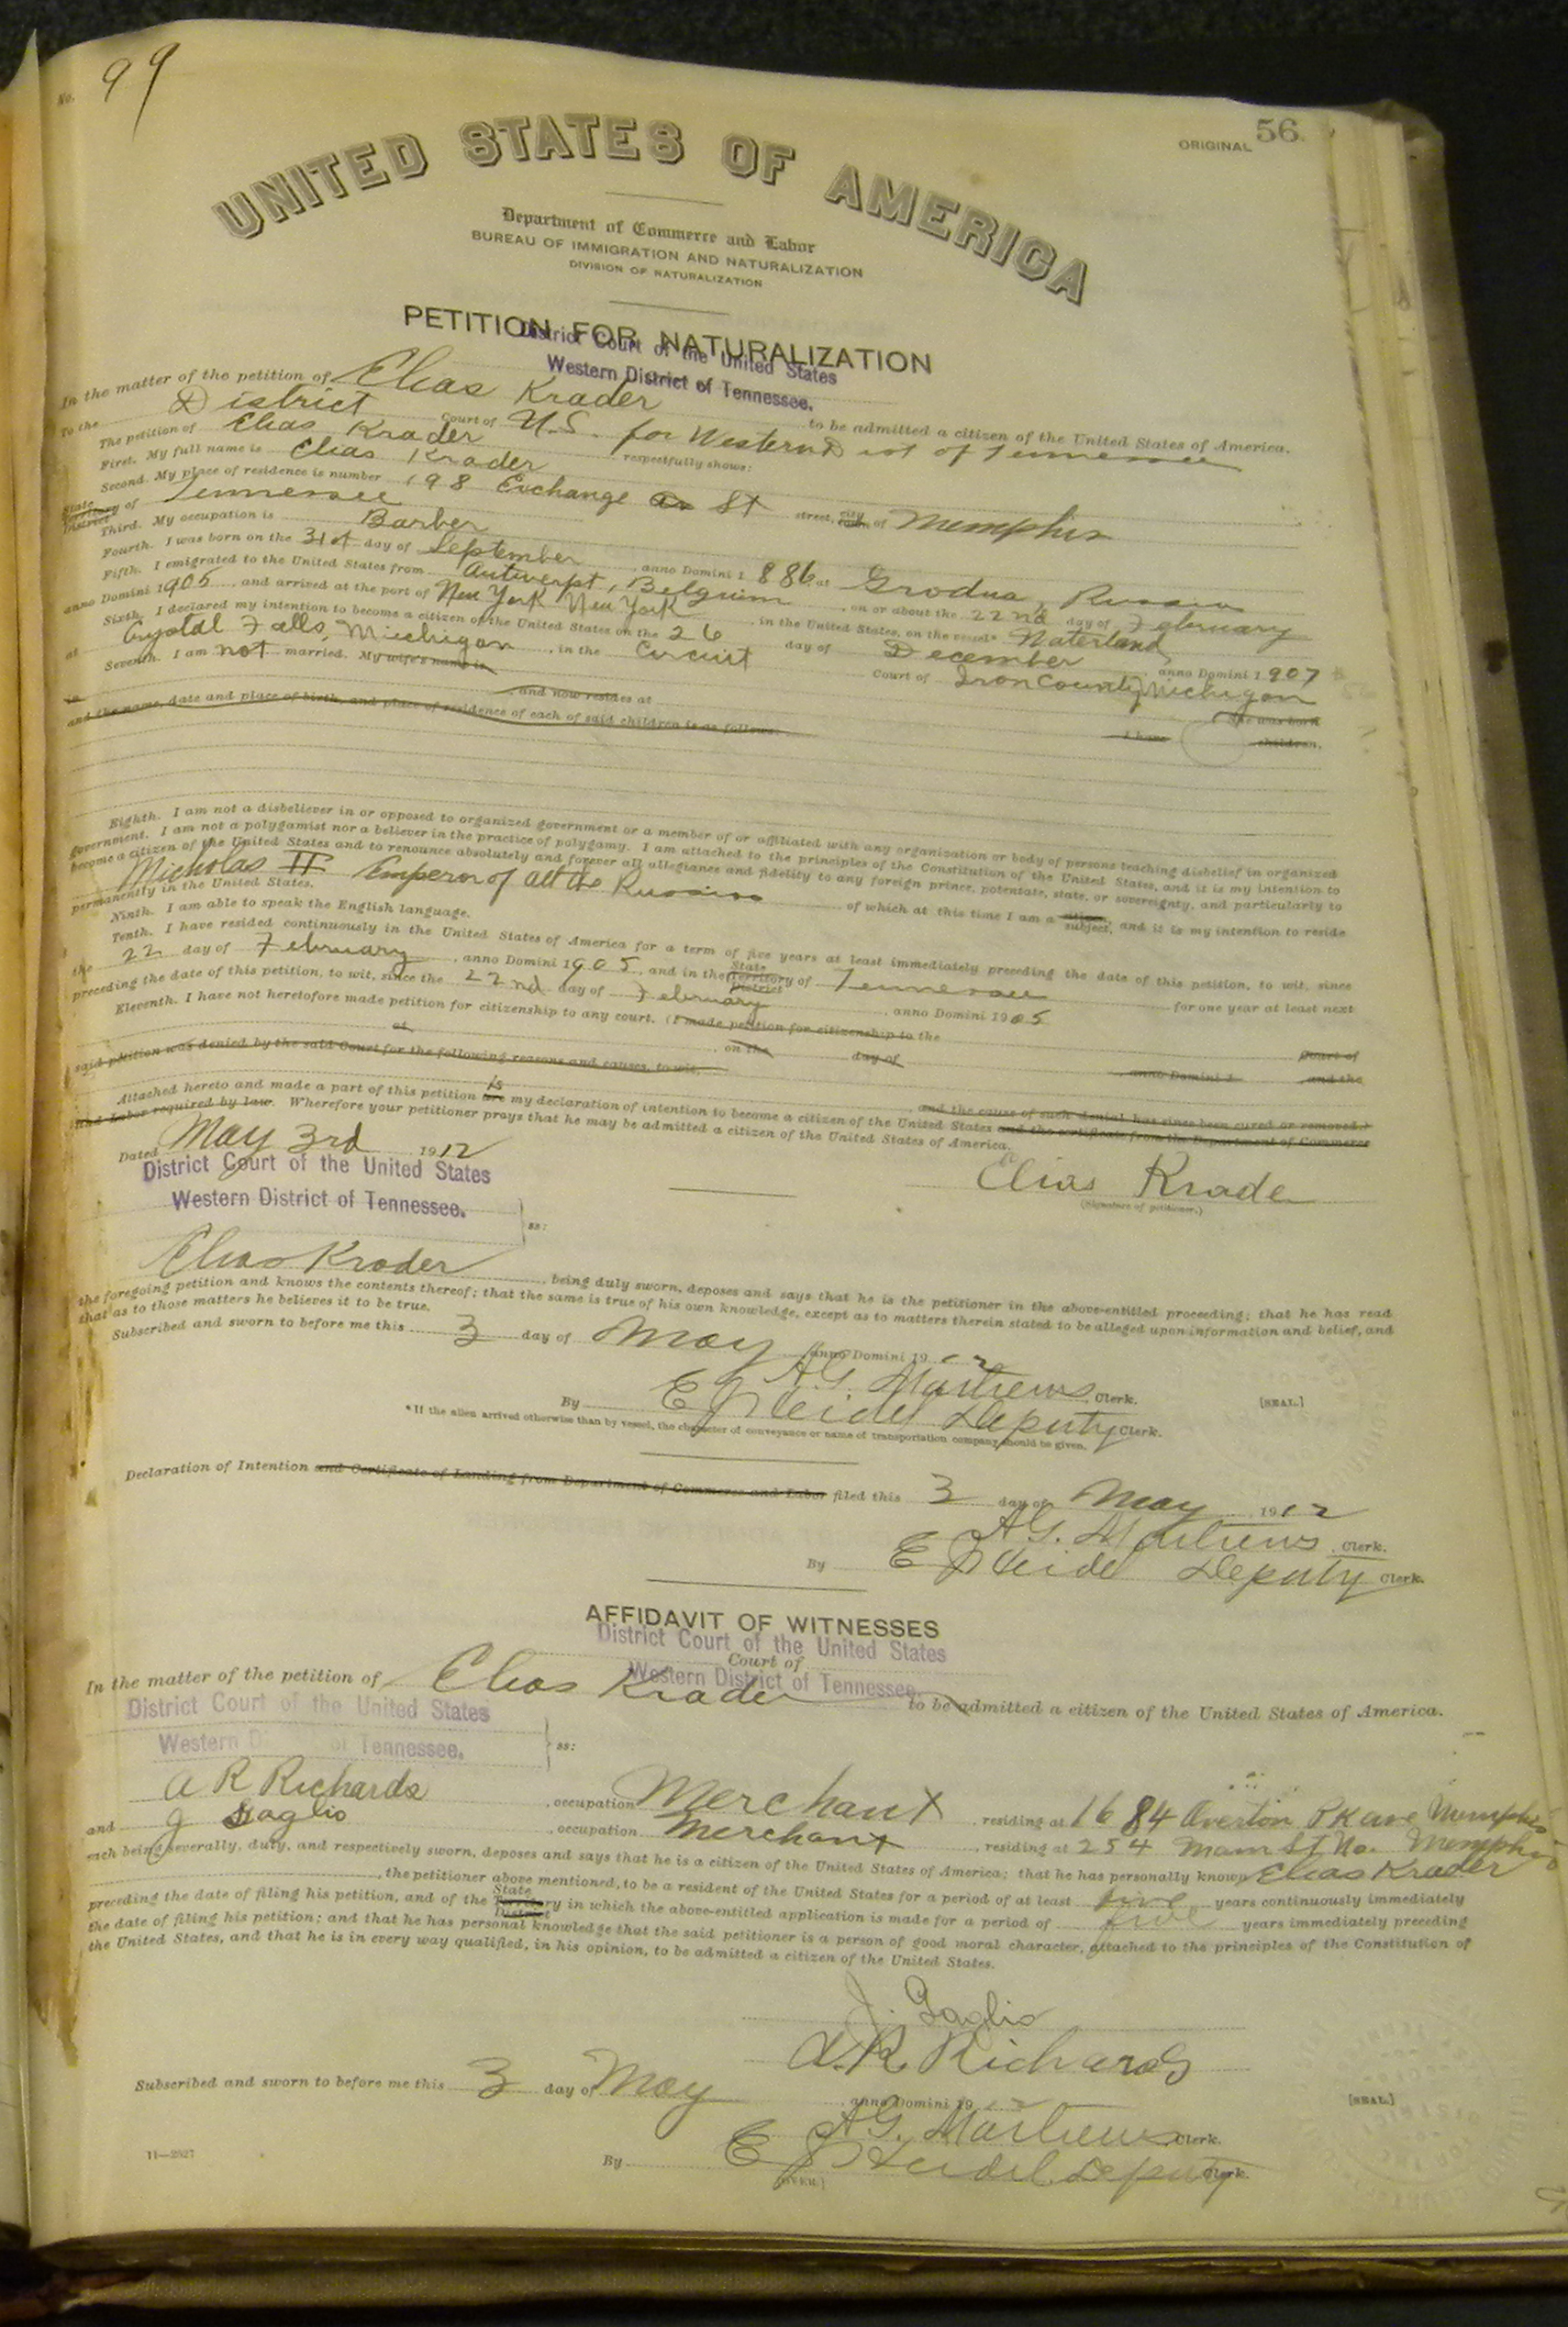 No. 99
ORIGINAL 56.
UNITED STATES OF AMERICA
Department of Commerce and Labor
BUREAU OF IMMIGRATION AND NATURALIZATION
DIVISION OF NATURALIZATION
PETITION FOR NATURALIZATION
District Court of the United States
Western District of Tennessee.
In the matter of the petition of Elias Krader to be admitted a citizen of the United States of America.
To the District Court of U.S. for Western Dist of Tennessee
The petition of Elias Krader respectfully shows:
First. My full name is Elias Krader
Second. My place of residence is number 198 Exchange St street, city of Memphis
State Territory District of Tennessee
Third. My occupation is Barber
Fourth. I was born on the 31st day of September, anno Domini 1886 at Grodna, Russia
Fifth. I emigrated to the United States from Antwerpt, Belgium, on or about the 22nd day of February
anno Domini 1905, and arrived at the port of New York New York in the United States, on the vessel* Naterland
Sixth. I declared my intention to become a citizen of the United States on the 26 day of December anno Domini 1907
at Crystal Falls, Michigan, in the Circuit Court of Iron County, Michigan
Seventh. I am not married. My wife's name is
She was born
in and now resides at
I have children,
and the name, date and place of birth, and place of residence of each of said children is as follows:
Eighth. I am not a disbeliever in or opposed to organized government or a member of or affiliated with any organization or body of persons teaching disbelief in organized
government. I am not a polygamist nor a believer in the practice of polygamy. I am attached to the principles of the Constitution of the United States, and it is my intention to
become a citizen of the United States and to renounce absolutely and forever all allegiance and fidelity to any foreign prince, potentate, state, or sovereignty, and particularly to
Nicholas II Emperor of all the Russias of which at this time I am a citizen subject, and it is my intention to reside
permanently in the United States.
Ninth. I am able to speak the English language.
Tenth. I have resided continuously in the United States of America for a term of five years at least immediately preceding the date of this petition, to wit, since
the 22 day of February, anno Domini 1905, and in the State Territory District of Tennessee for one year at least next
preceding the date of this petition, to wit, since the 22nd day of February, anno Domini 1905
Eleventh. I have not heretofore made petition for citizenship to any court. (I made petition for citizenship to the Court of
at on the day of anno Domini 1 and the
said petition was denied by the said Court for the following reasons and causes, to wit,
and the cause of such denial has since been cured or removed.)
Attached hereto and made a part of this petition are is my declaration of intention to become a citizen of the United States and the certificate from the Department of Commerce
and Labor required by law. Wherefore your petitioner prays that he may be admitted a citizen of the United States of America.
Dated May 3rd 1912
Elias Krade
(Signature of petitioner.)
District Court of the United States
Western District of Tennessee. ss:
Elias Krader, being duly sworn, deposes and says that he is the petitioner in the above-entitled proceeding; that he has read
the foregoing petition and knows the contents thereof; that the same is true of his own knowledge, except as to matters therein stated to be alleged upon information and belief, and
that as to those matters he believes it to be true.
Subscribed and sworn to before me this 3 day of May anno Domini 1912
A.G. Mathews, Clerk. [SEAL.]
By E J Heidel Deputy Clerk.
*If the alien arrived otherwise than by vessel, the character of conveyance or name of transportation company should be given.
Declaration of Intention and Certificate of Landing from Department of Commerce and Labor filed this 3 day of May 1912
A.G. Mathews, Clerk.
By E J Heidel Deputy Clerk.
AFFIDAVIT OF WITNESSES
District Court of the United States
Court of
Western District of Tennessee.
In the matter of the petition of Elias Krader to be admitted a citizen of the United States of America.
District Court of the United States
Western D of Tennessee. ss:
A R Richards, occupation Merchant, residing at 1684 Overton Pk ave Memphis
and J Gaglio, occupation Merchant, residing at 254 Main St No. Memphis
each being severally, duly, and respectively sworn, deposes and says that he is a citizen of the United States of America; that he has personally known Elias Krader
, the petitioner above mentioned, to be a resident of the United States for a period of at least five years continuously immediately
preceding the date of filing his petition, and of the State Territory District in which the above-entitled application is made for a period of five years immediately preceding
the date of filing his petition; and that he has personal knowledge that the said petitioner is a person of good moral character, attached to the principles of the Constitution of
the United States, and that he is in every way qualified, in his opinion, to be admitted a citizen of the United States.
J. Gaglio
A.R. Richards
Subscribed and sworn to before me this 3 day of May anno Domini 1912 [SEAL.]
A.G. Mathews Clerk.
By E J Heidel Deputy Clerk.
11—2927
(OVER.)